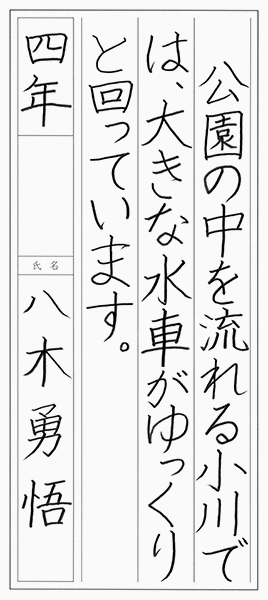 公園の中を流れる小川で
は、大きな水車がゆっくり
と回っています。
四年
氏名
八木勇悟